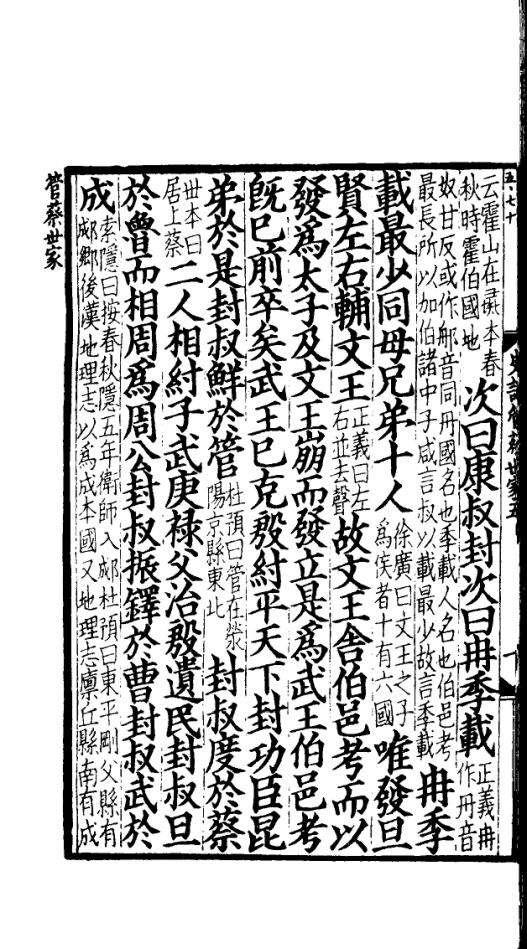 五、七十
云霍山在彘本春
秋時霍伯國地
次曰康叔封次曰冉季載
正義冉
作冄音
奴甘反或作䣎音同冄國名也季載人名也伯邑考
最長所以加伯諸中子咸言叔以載最少故言季載
冉季
載最少同母兄弟十人
徐廣曰文王之子
爲侯者十有六國
唯發旦
賢左右輔文王
正義曰左
右並去聲
故文王舍伯邑考而以
發爲太子及文王崩而發立是爲武王伯邑考
旣已前卒矣武王已克殷紂平天下封功臣昆
弟於是封叔鮮於管
杜預曰管在滎
陽京縣東北
封叔度於蔡
世本曰
居上蔡
二人相紂子武庚祿父治殷遺民封叔旦
於魯而相周爲周公封叔振鐸於曹封叔武於
成
索隱曰按春秋隱五年衛師入郕杜預曰東平剛父縣有
郕鄉後漢地理志以爲成本國又地理志廩丘縣南有成
管蔡世家